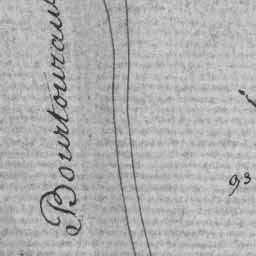 Bourtourau
93